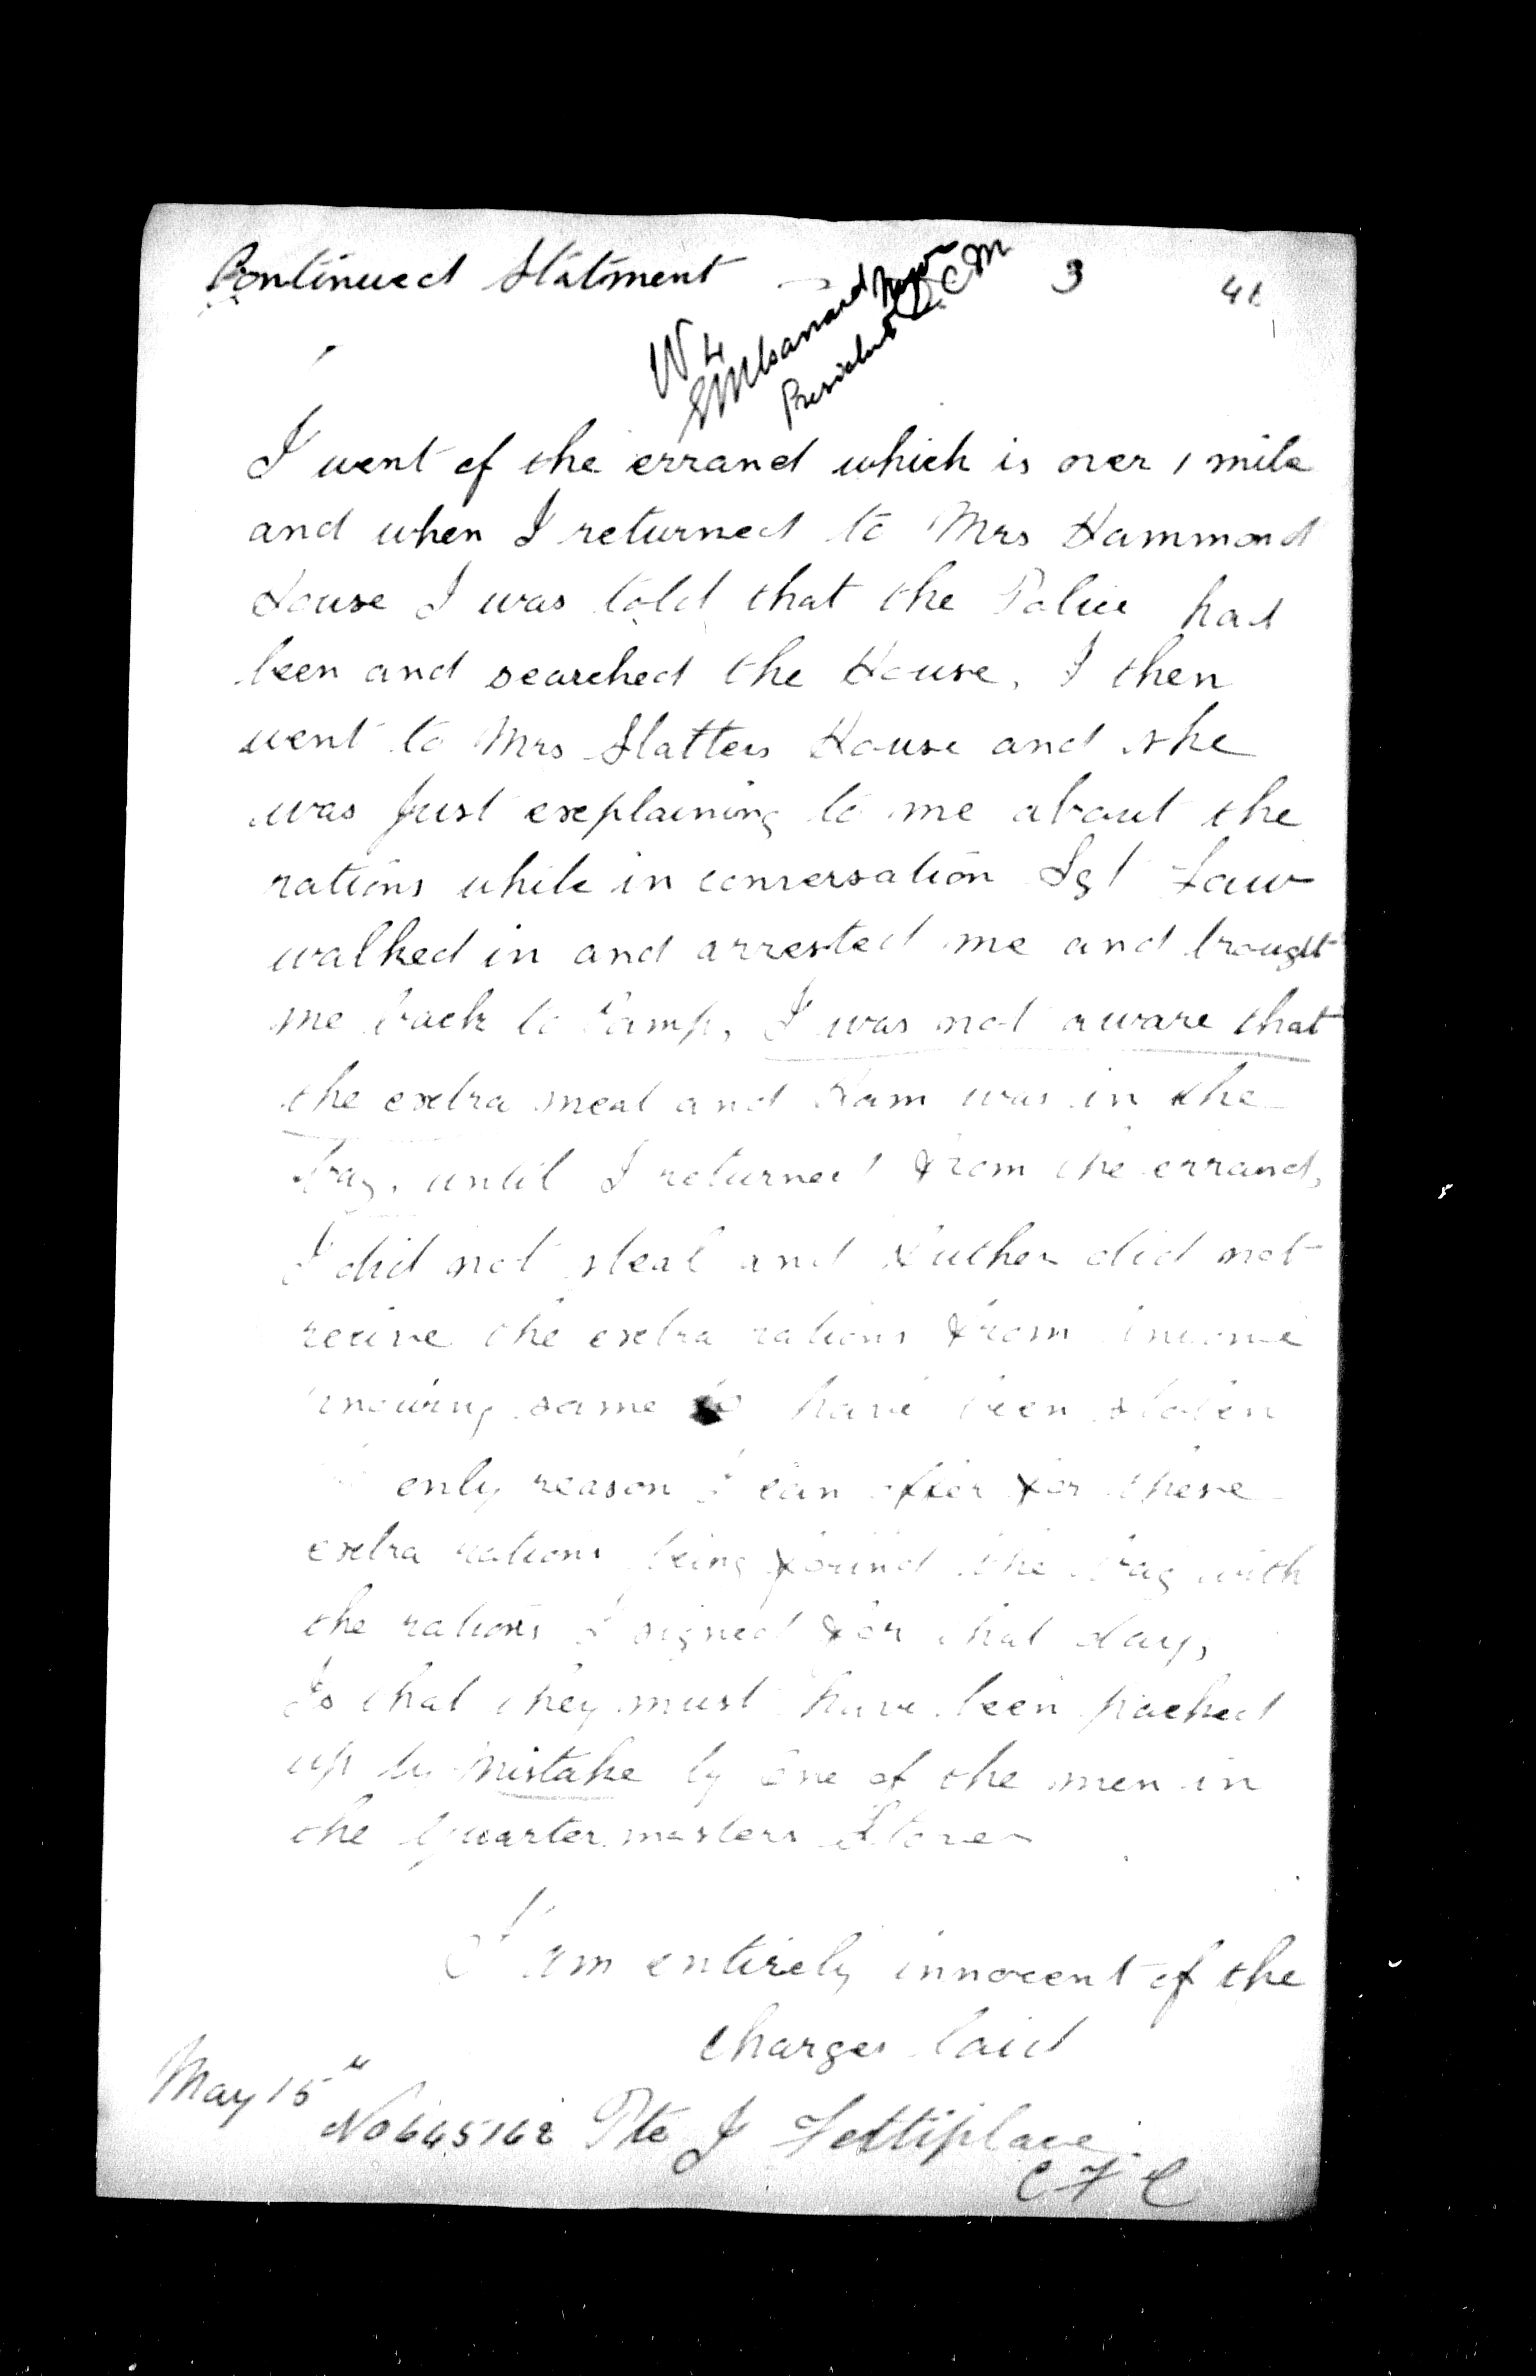 Continued Statment 3 41
W 4
Major
President D.C.M
I went of the errand which is over 1 mile
and when I returned to Mrs Hammond
House I was told that the Police had
been and searched the House. I then
went to Mrs Slatters House and she
was just explaining to me about the
rations while in conversation Sgt Law
walked in and arrested me and brought
me back to Camp, I was not aware that
the extra meat and Ham was in the
bag, until I returned from the errand,
I did not steal and Luther did not
recive the extra rations from
knowing same to have been stolen
only reason I can offer for these
extra rations being found the bag with
the rations I signed for that day,
Is that they must have been packed
up by mistake by one of the men in
the Quartermasters Stores
I am entirely innocent of the
charges laid
May 15th
No 645162 Pte J Fettiplace.
C F C